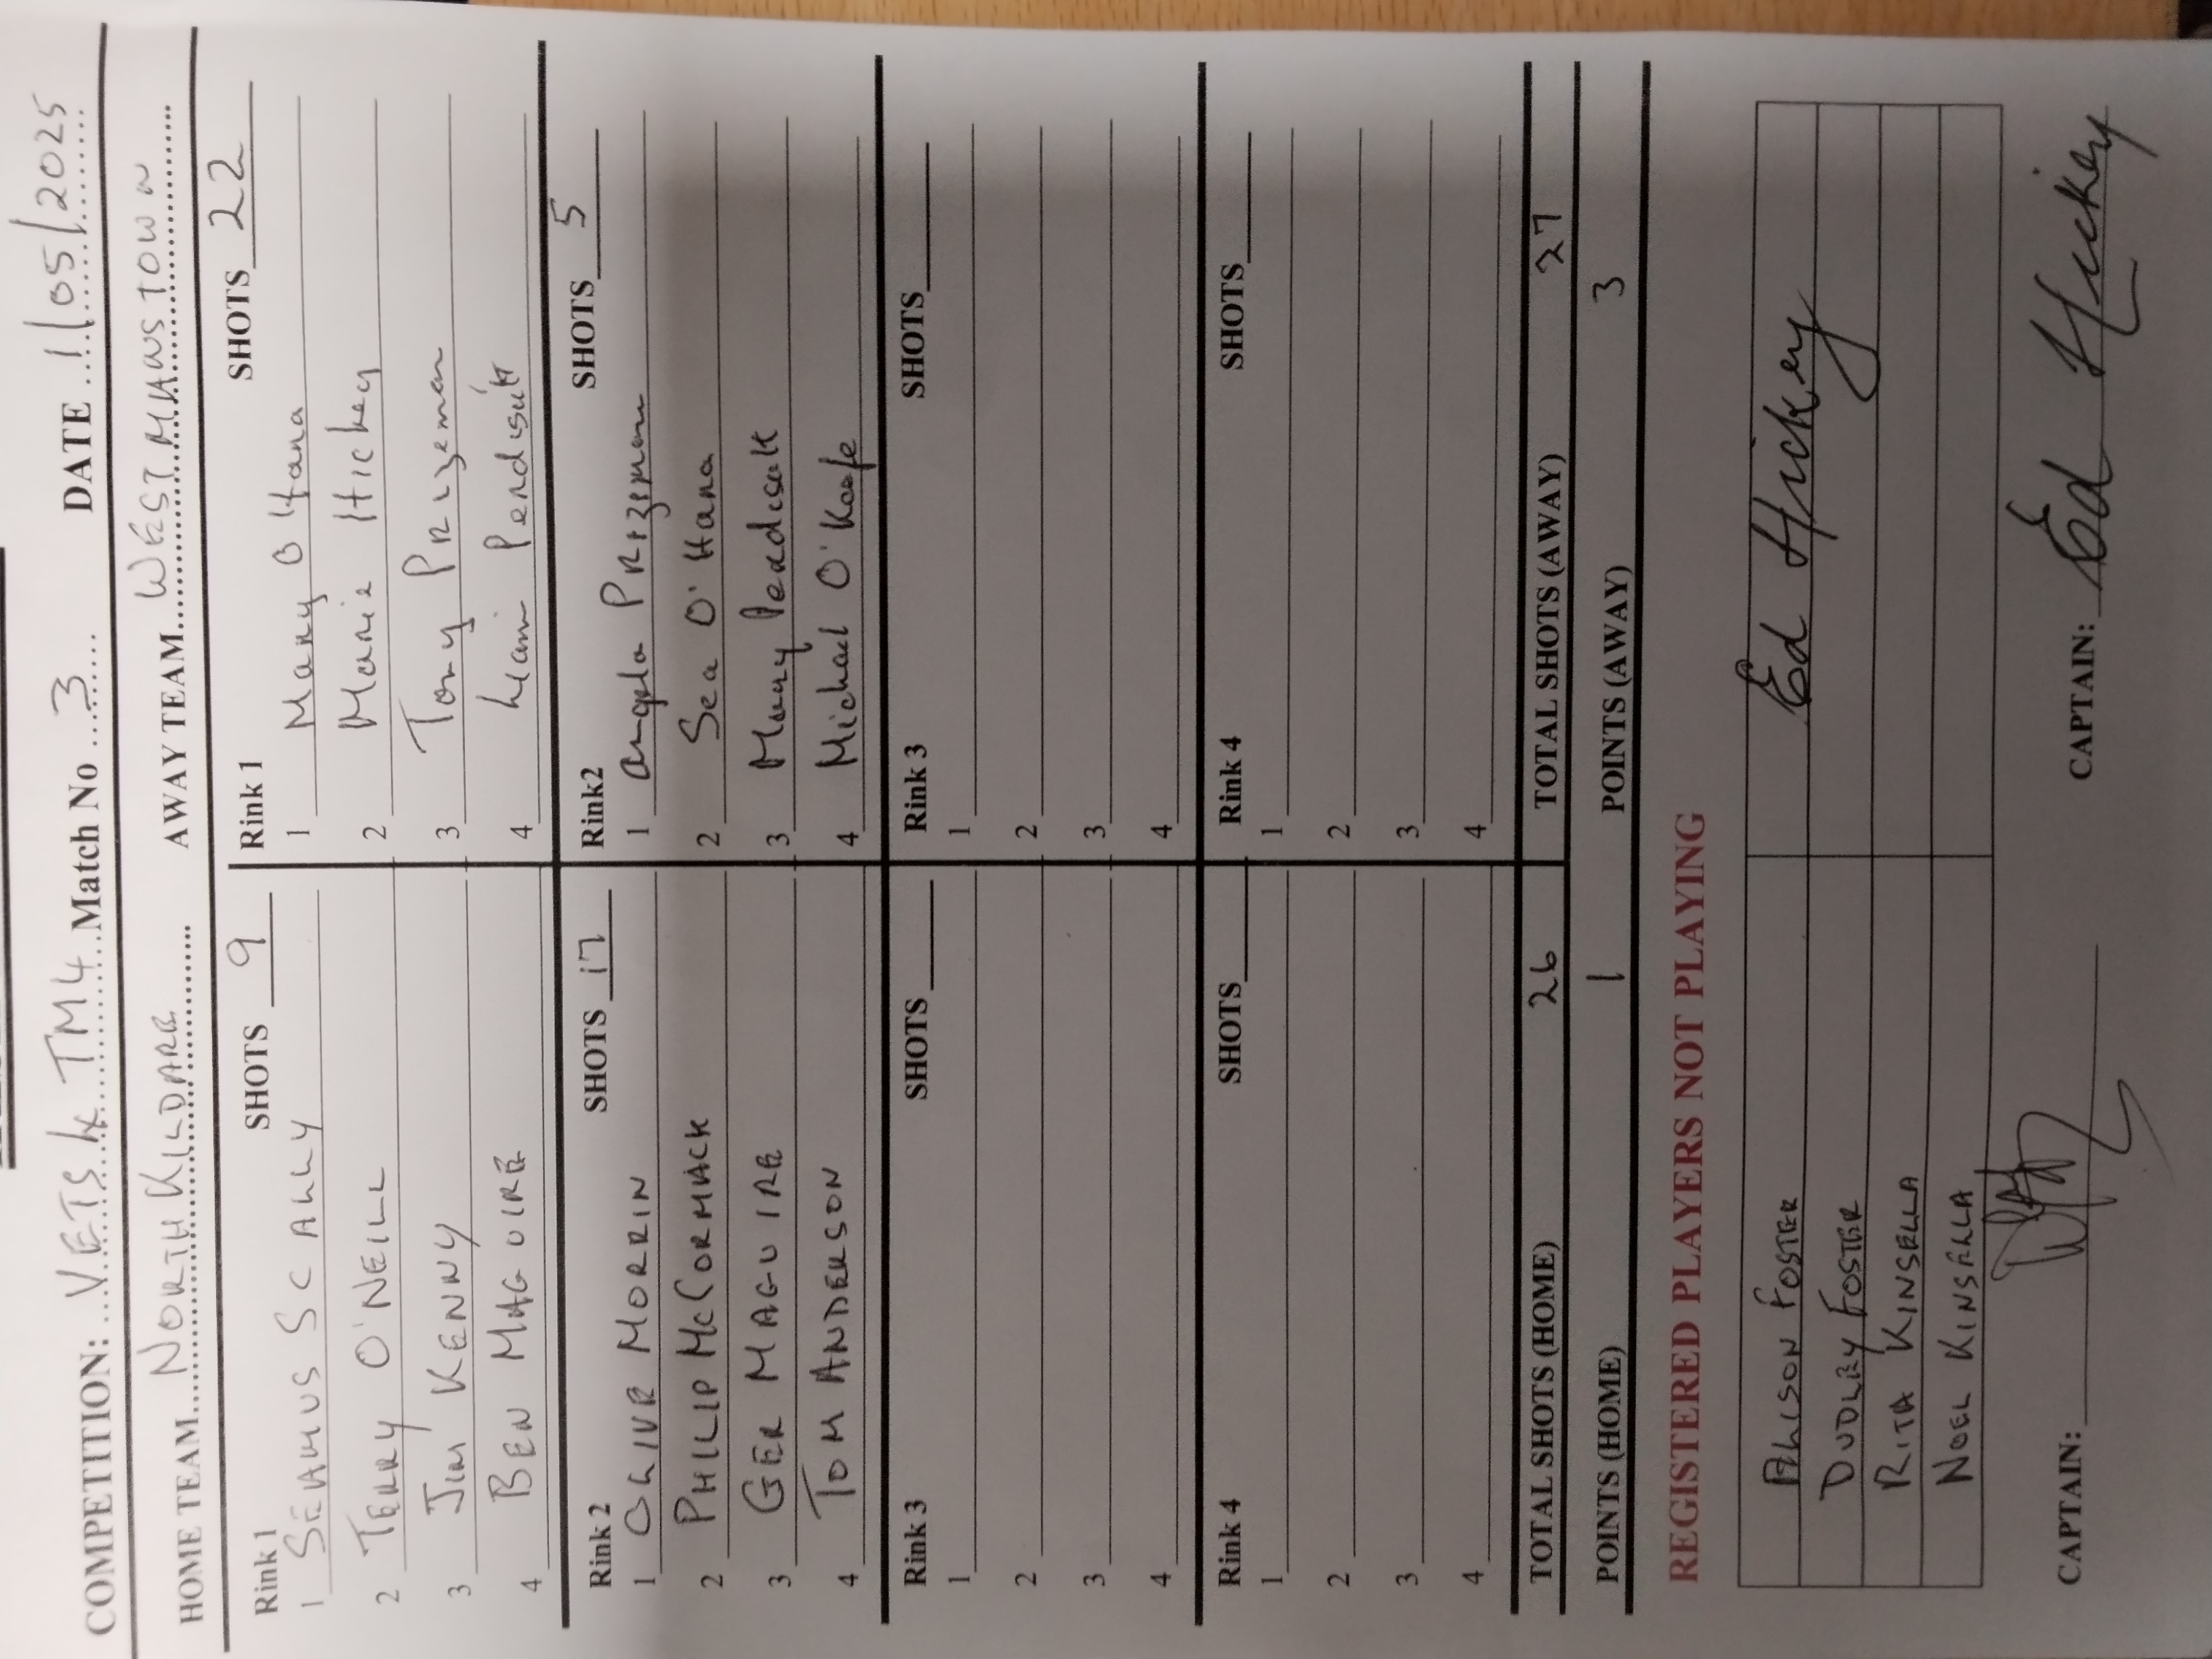 COMPETITION: VETS & TM4 Match No 3 DATE 1/05/2025
HOME TEAM NORTH KILDARE AWAY TEAM WEST MANSTOWN
Rink 1 SHOTS 9 Rink 1 SHOTS 22
1 SEAMUS SCALLY 1 Mary O Hara
2 TERRY O'NEILL 2 Marie Hickey
3 JIM KENNY 3 Tony Prizeman
4 BEN MAGUIRE 4 Liam
Rink 2 SHOTS 17 Rink2 SHOTS 5
1 OLIVE MORRIN 1 Angela Prizeman
2 PHILIP McCORMACK 2 Sea O'Hara
3 GER MAGUIRE 3
4 TOM ANDERSON 4 Michael O'Keefe
Rink 3 SHOTS Rink 3 SHOTS
1 1
2 2
3 3
4 4
Rink 4 SHOTS Rink 4 SHOTS
1 1
2 2
3 3
4 4
TOTAL SHOTS (HOME) 26 TOTAL SHOTS (AWAY) 27
POINTS (HOME) 1 POINTS (AWAY) 3
REGISTERED PLAYERS NOT PLAYING
ALISON FOSTER Ed Hickey
DUDLEY FOSTER
RITA KINSELLA
NOEL KINSELLA
CAPTAIN: CAPTAIN: Ed Hickey